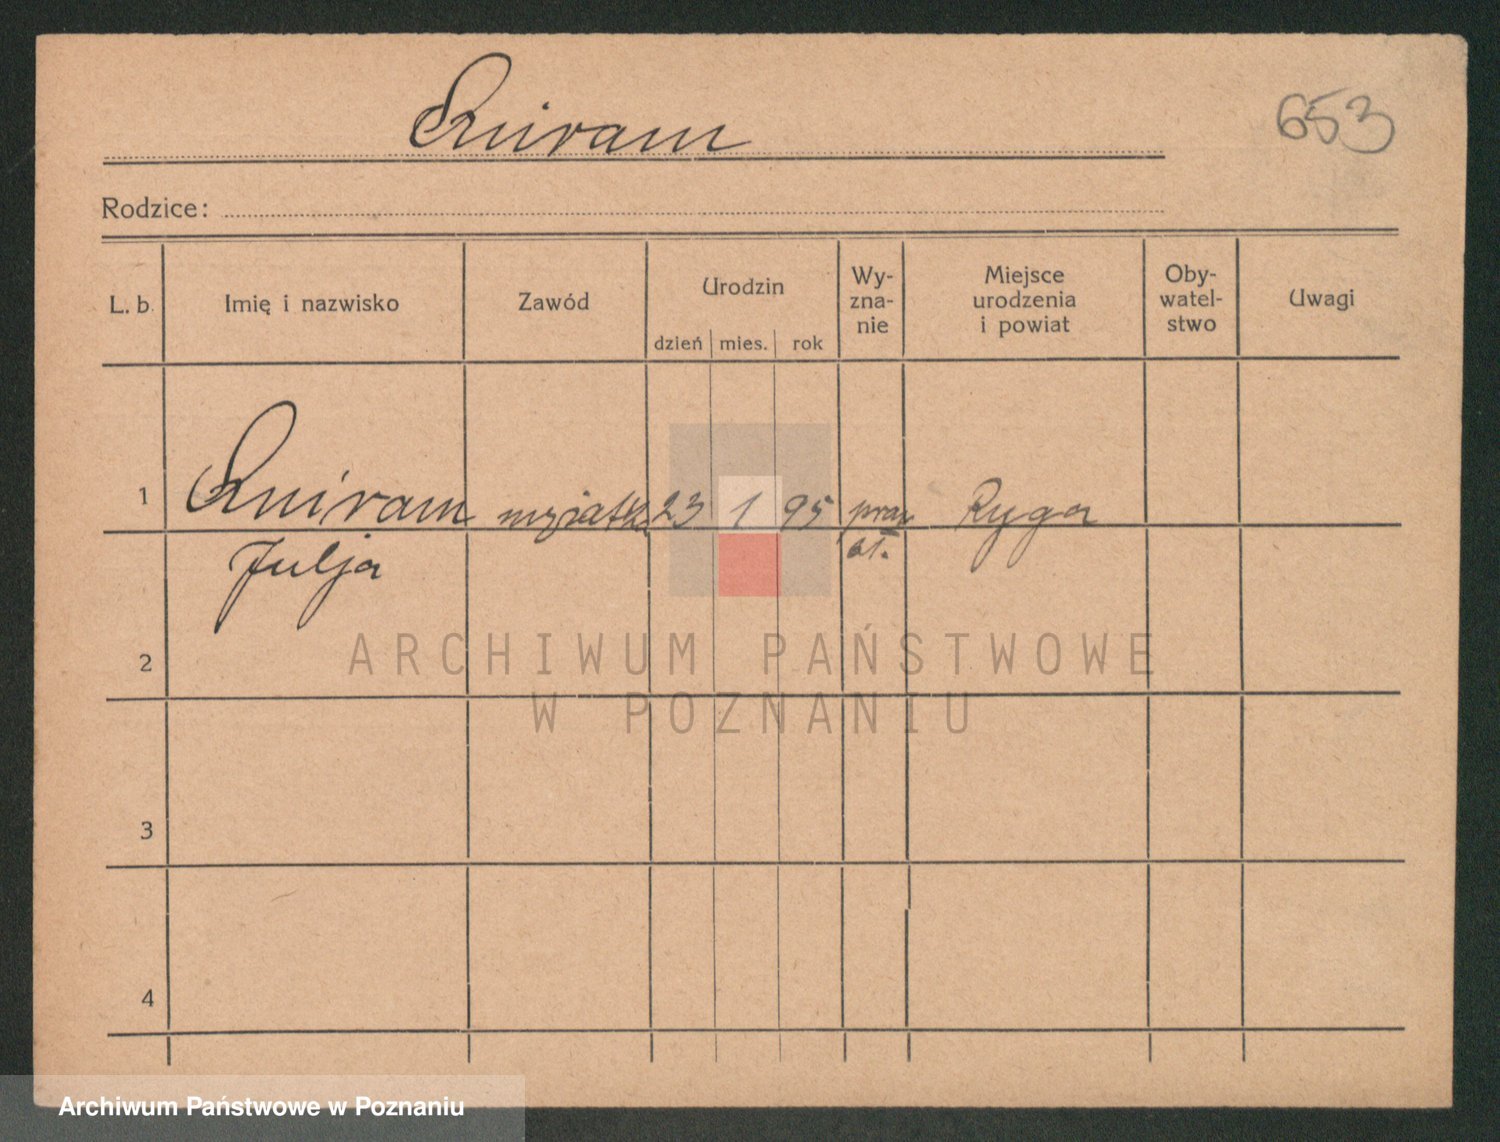 Quiram
653
Rodzice:
L. b.
Imię i nazwisko
Zawód
Urodzin
dzień mies. rok
Wy-
zna-
nie
Miejsce
urodzenia
i powiat
Oby-
watel-
stwo
Uwagi
1 Quiram 23 1 95 Ryga
Julja
2
3
4
ARCHIWUM PAŃSTWOWE
W POZNANIU
Archiwum Państwowe w Poznaniu